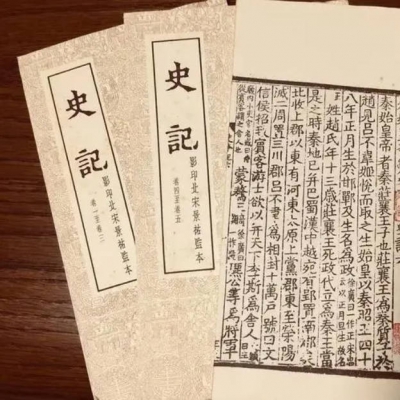 史記
影印北宋景祐監本
卷一至卷三
史記
影印北宋景祐監本
卷四至卷五
秦始皇帝者秦莊襄王子也莊襄王為秦質子
趙見呂不韋姬悅而取之生始皇以秦昭王四十
八年正月生於邯鄲及生名為政
姓趙氏年十三歲莊襄王死政代立為秦王當
是之時秦地已并巴蜀漢中越宛有郢置南郡
北收上郡以東有河東太原上黨郡東至滎陽
滅二周置三川郡呂不韋為相封十萬戶號曰文
信侯招致賓客游士欲以并天下李斯為舍人
蒙驁 公等為將軍